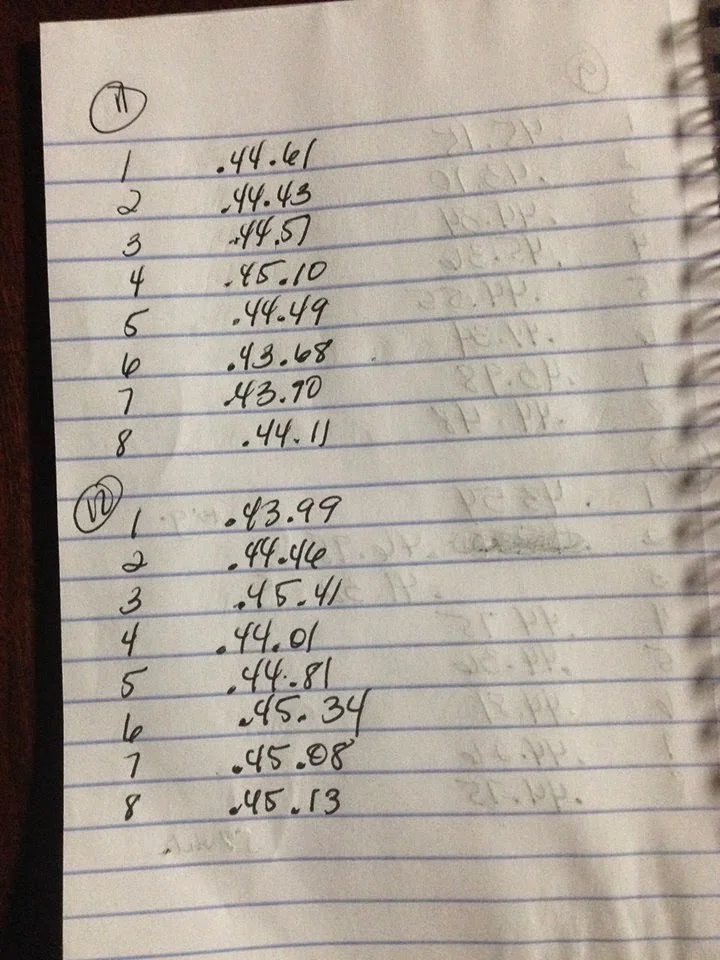 11
1 .44.61
2 .44.43
3 .44.51
4 .45.10
5 .44.49
6 .43.68
7 .43.70
8 .44.11
12
1 .43.99
2 .44.46
3 .45.41
4 .44.01
5 .44.81
6 .45.34
7 .45.08
8 .45.13